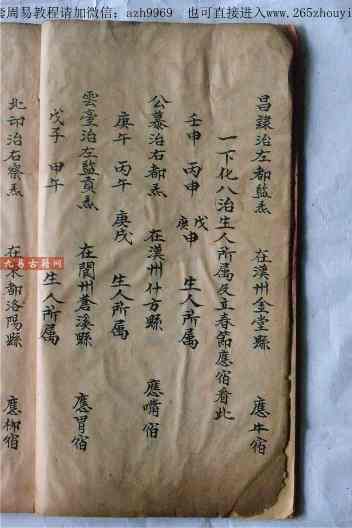 套周易教程请加微信：azh9969 也可直接进入www.265zhouyi
昌隸治左都監炁 在漢州金堂縣 應牛宿
一下化八治生人所屬及立春節應宿看此
壬申 丙申 戊申 庚申 生人所屬
公慕治右都炁 在漢州什方縣 應嘴宿
庚午 丙午 庚戌 生人所屬
雲臺治左監貢炁 在閬州蒼溪縣 應胃宿
戊子 甲午 生人所屬
北邙治右察炁 在 都洛陽縣 應柳宿
九易古籍网